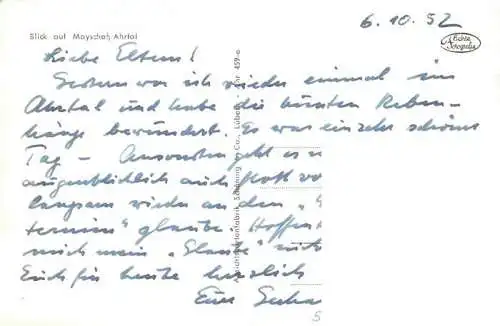 6.10.52
Blick auf Mayschoß/Ahrtal
Echte Fotografie
Liebe Eltern!
Gestern war ich wieder einmal im
Ahrtal und habe die bunten Reben-
hänge bewundert. Es war ein sehr schöner
Tag – Ansonsten geht es
augenblicklich auch flott vo
langsam wieder an den „
termin“ glaube. Hoffent
mich mein „Glaube“ nicht
Euch für heute herzlich
Euer
Ansichtskartenfabrik Schöning & Co., Lübeck
Nr. 459-e
5